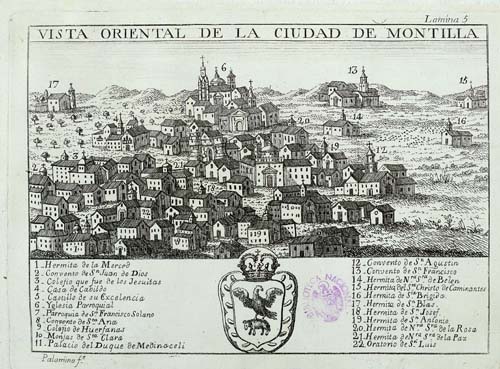 Lamina 5
VISTA ORIENTAL DE LA CIUDAD DE MONTILLA
17
6
13
15
14
16
20
19
12
21
1_Hermita de la Merced
2_Convento de Sn. Juan de Dios
3_Colejio que fue de los Jesuitas
4_Casa de Cabildo
5_Castillo de su Excelencia
6_Yglesia Parroquial
7_Parroquia de Sn. Francisco Solano
8_Convento de Sta. Ana
9_Colejio de Huerfanas
10_Monjas de Sta. Clara
11_Palacio del Duque de Medinaceli
12_Convento de Sn. Agustin
13_Convento de Sn. Francisco
14_Hermita de Na. Sra. de Belen
15_Hermita del Smo. Christo de Caminantes
16_Hermita de Sta. Brigida
17_Hermita de Sn. Blas
18_Hermita de Sn. Josef
19_Hermita de Sn. Antonio
20_Hermita de Nra. Sra. de la Rosa
21_Hermita de Nra. Sra. de la Paz
22_Oratorio de Sn. Luis
Palomino ft.